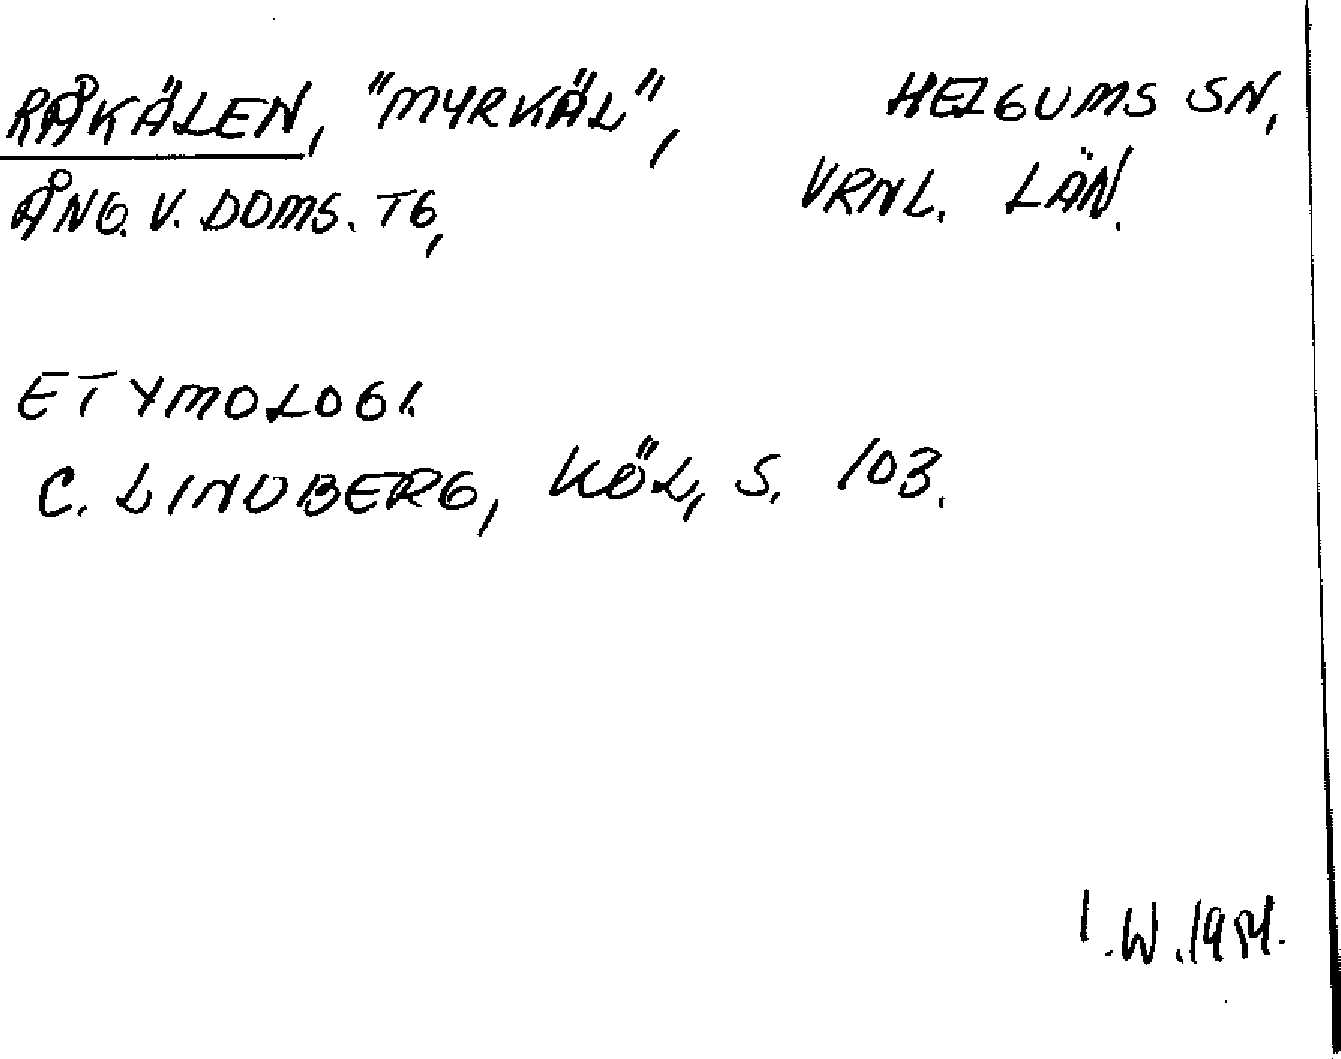 RÅKÄLEN, "MYRKÄL", HELGUMS SN,
ÅNG. V. DOMS. TG, VRNL. LÄN.
ETYMOLOGI.
C. LINDBERG, KÖL, S. 103.
I.W.